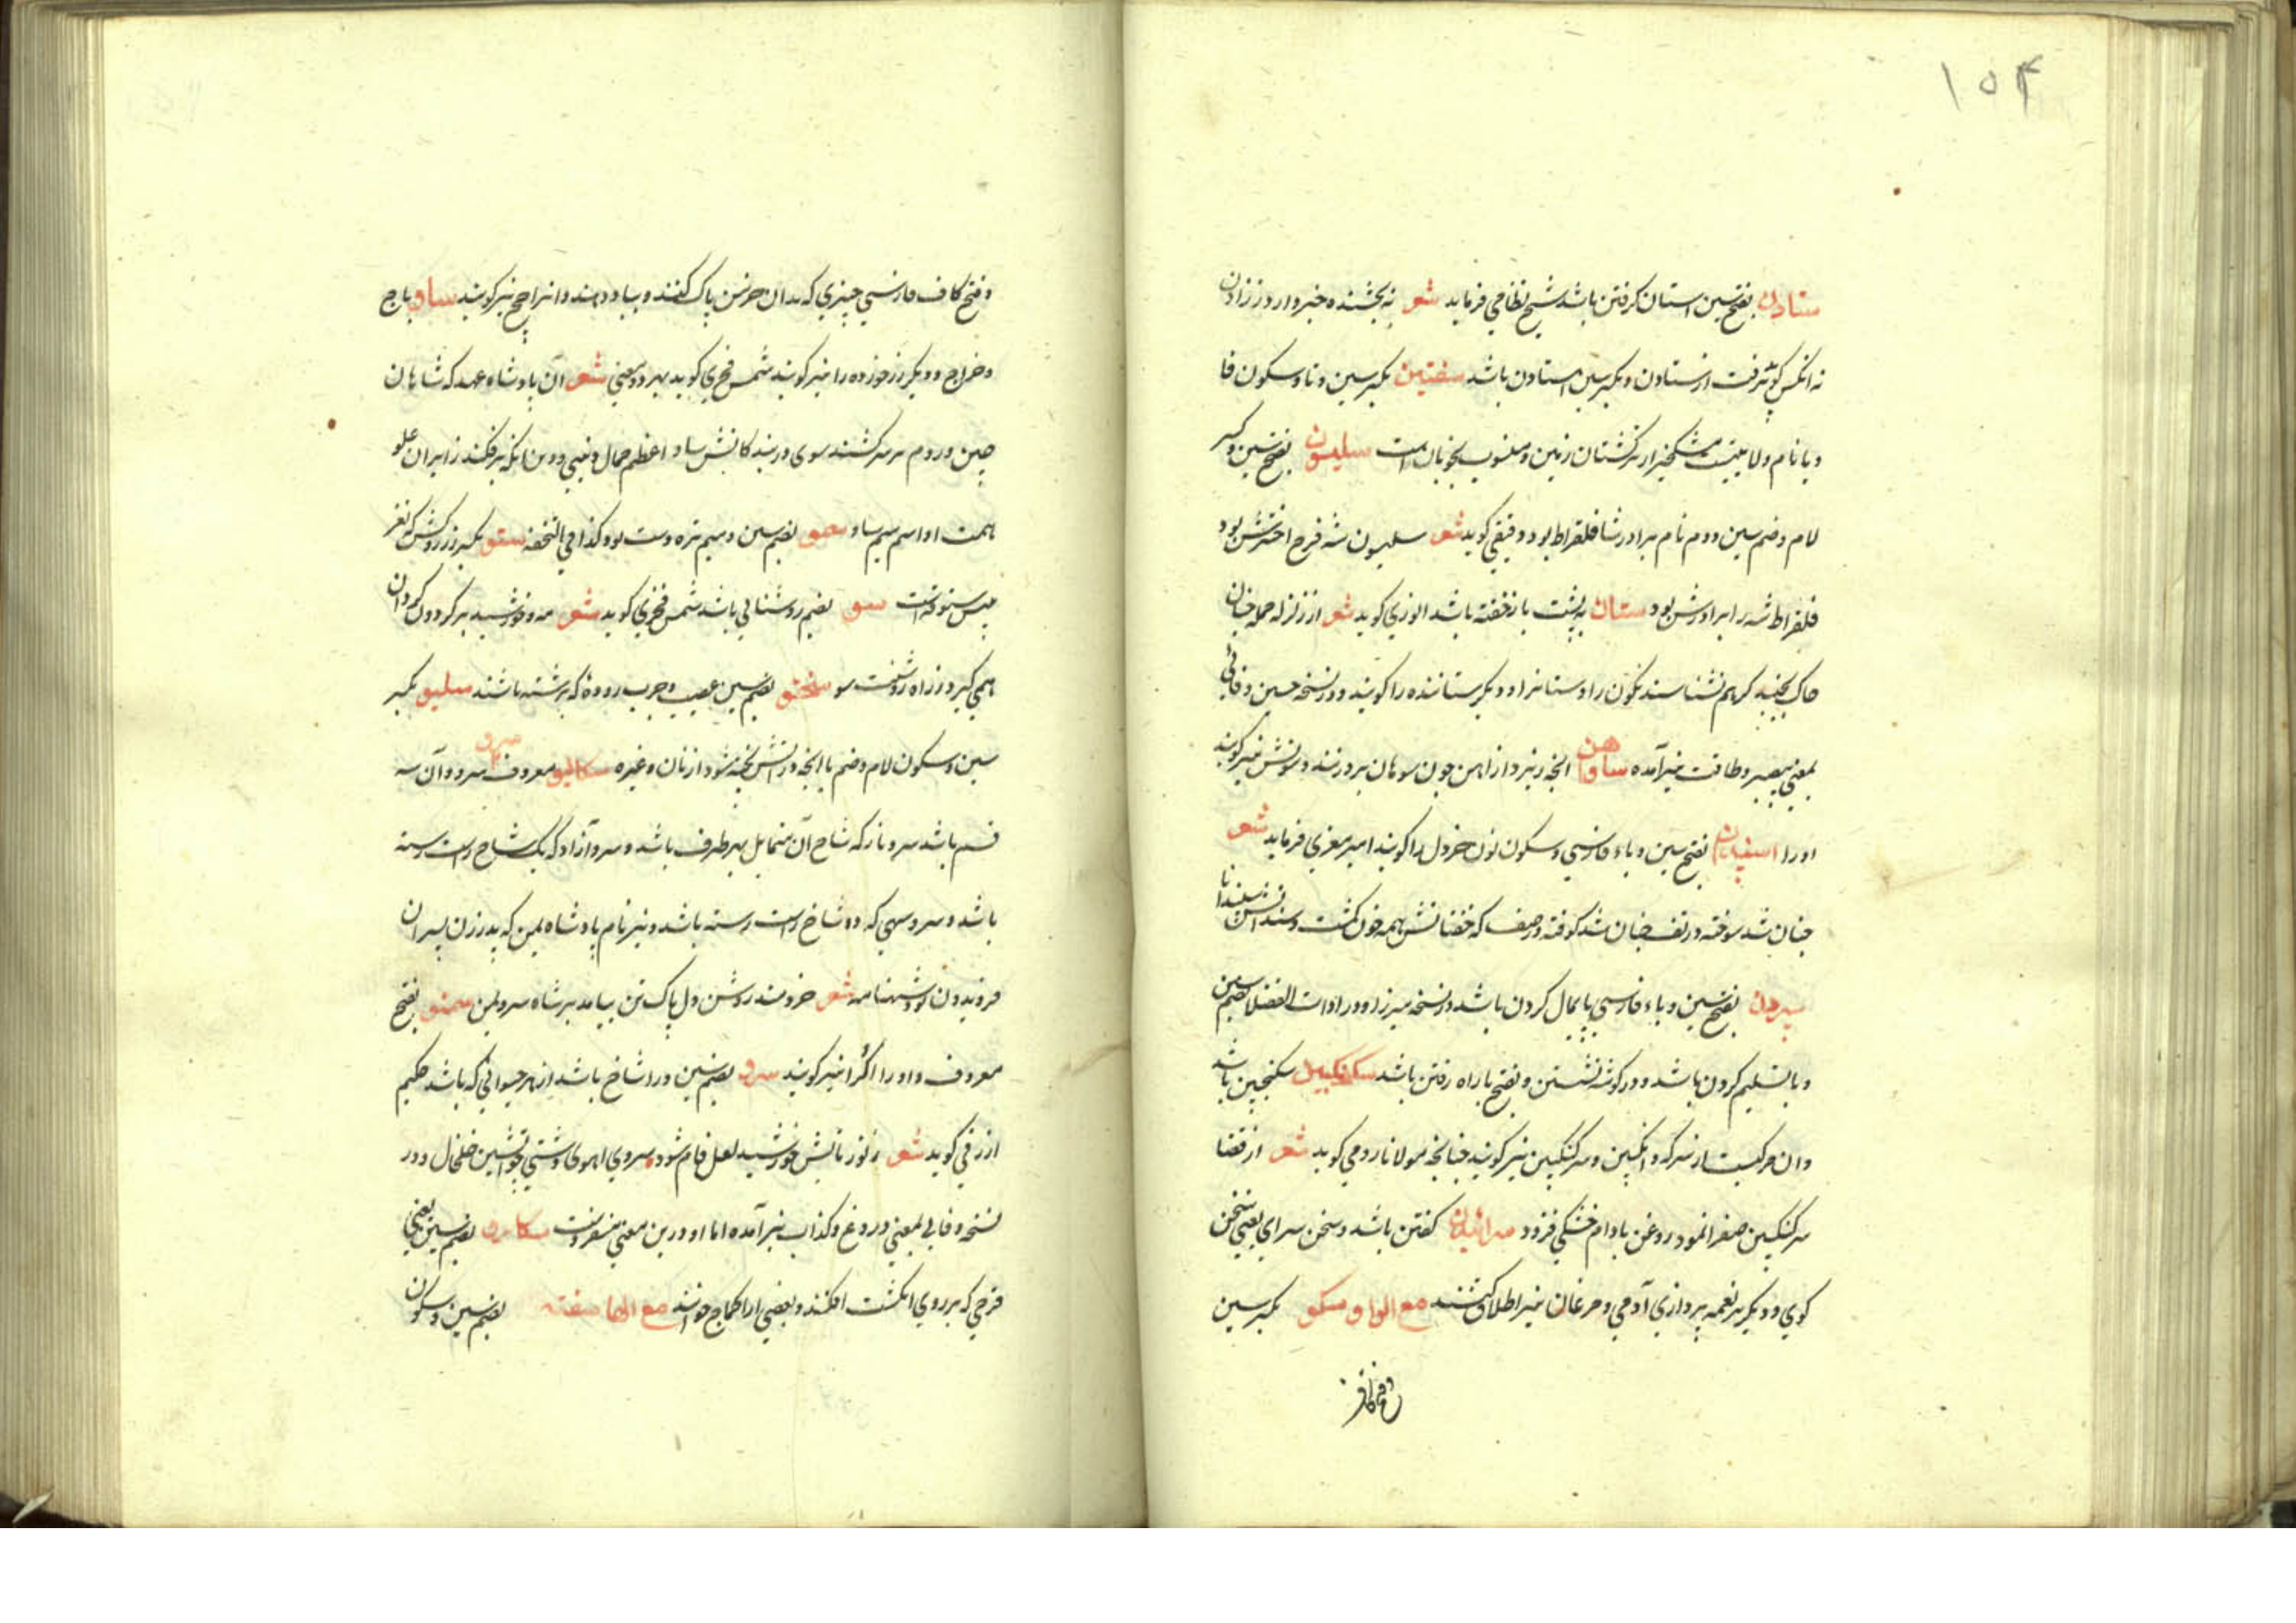 ۱۵۴
ستادن بفتح سین استان کرفتن باشد شیخ نظامی فرماید شعر نه بخشنده خبر دارد ز زادن
نه انکس کو پذیرفت از ستادن و بکسر سین استادن باشد سفتین بکسر سین و تا و سکون فا
و یا نام ولایتیست مشکخیز از ترکستان زمین و منسوب بخوبان است سلیسون بفتح سین و کسر
لام و ضم سین دوم نام برادر شاه فلقراط بود و فیقی کوید شعر سلیسون شه فرخ اخترش بود
فلقراط شه را برادرش بود ستان به پشت باز خفته باشد انوری کوید شعر از زلزله حمله چنان
خاک بجنبد کز هم نشناسند نکون را و ستان را و دیکر ستاننده را کویند و در نسخه حسین وفائی
بمعنی بیصبر و طاقت نیز آمده ساوهن انچه ریزد از اهن چون سوهان بر و زنند و سونش نیز کویند
اورا اسپندان بفتح سین و باء فارسی و سکون نون خردل را کویند امیر معزی فرماید شعر
چنان شد سوخته در تف چنان شد کوفته در صف که خفتانش همه خون کشت و سندانش سپندانا
سپردن بفتح سین و باء فارسی پایمال کردن باشد در نسخه میرزا و در ادات الفضلا بضم سین
و با تسلیم کردن باشد و در کوشه نشستن و بفتح با راه رفتن باشد سکنکبیل سکنجبین باشد
و ان مرکبیست از سرکه و انکبین و سرکنکبین نیز کویند چنانچه مولانا رومی کوید شعر از قضا
سرکنکبین صفرا نمود روغن بادام خشکی فزود سرائیدن کفتن باشد و سخن سرای یعنی سخن
کوی و دیکر بر نغمه پردازی آدمی و مرغان نیز اطلاق کنند مع الواو سکو بکسر سین
و فتح کاف
و فتح کاف فارسی چیزی که بدان خرمن پاک کنند و بباد دهند و انرا چج نیز کویند ساو باج
و خراج و دیکر زر خورده را نیز کویند شمس فخری کوید بهر دو معنی شعر آن پادشاه عهد که شاهان
چین و روم سر سر کشند سوی در بندکانش ساو اعظم جمال دنیی و دین انکه بر فکند ز ایران علو
همت او اسم و رسم ساو سمو بضم سین و میم تره دست بود کذا فی التحفه ستو بکسر زر روکش که نغز
میس ستوقه است سو بضم روشنائی باشد شمس فخری کوید شعر مه و خورشید بر کردون کردان
همی کیرد ز راه روشنت سو سختو بضم سین عصیب و چرب روده که برشته باشند سلیو بکسر
سین و سکون لام و ضم یا انچه در اتش پخته شود از نان و غیره سکالیو سرو معروف و سرو آن سه
قسم باشد سرو ناز که شاخ آن متمایل بهر طرف باشد و سرو آزاد که یک شاخ راست رسته
باشد و سرو سهی که دو شاخ راست رسته باشد و نیز نام پادشاه یمن که پدر زن پسران
فریدون بود شهنامه شعر خردمند روشن دل پاک تن بیامد بر شاه سرو یمن سمنو بفتح
معروف و اورا اکرا نیز کویند سرو بضم سین و را شاخ باشد از هر حیوانی که باشد حکیم
ازرقی کوید شعر ز نور تابش خورشید لعل فام شود سروی اهوی دشتی چو اتشین خلخال و در
نسخه وفایی بمعنی دروغ و کذاب نیز آمده اما او درین معنی منفردست سکارو بضم سین یعنی
قرصی که بر روی انکشت افکنند و بعضی ارا کماج خوانند مع الها سفته بضم سین و سکون